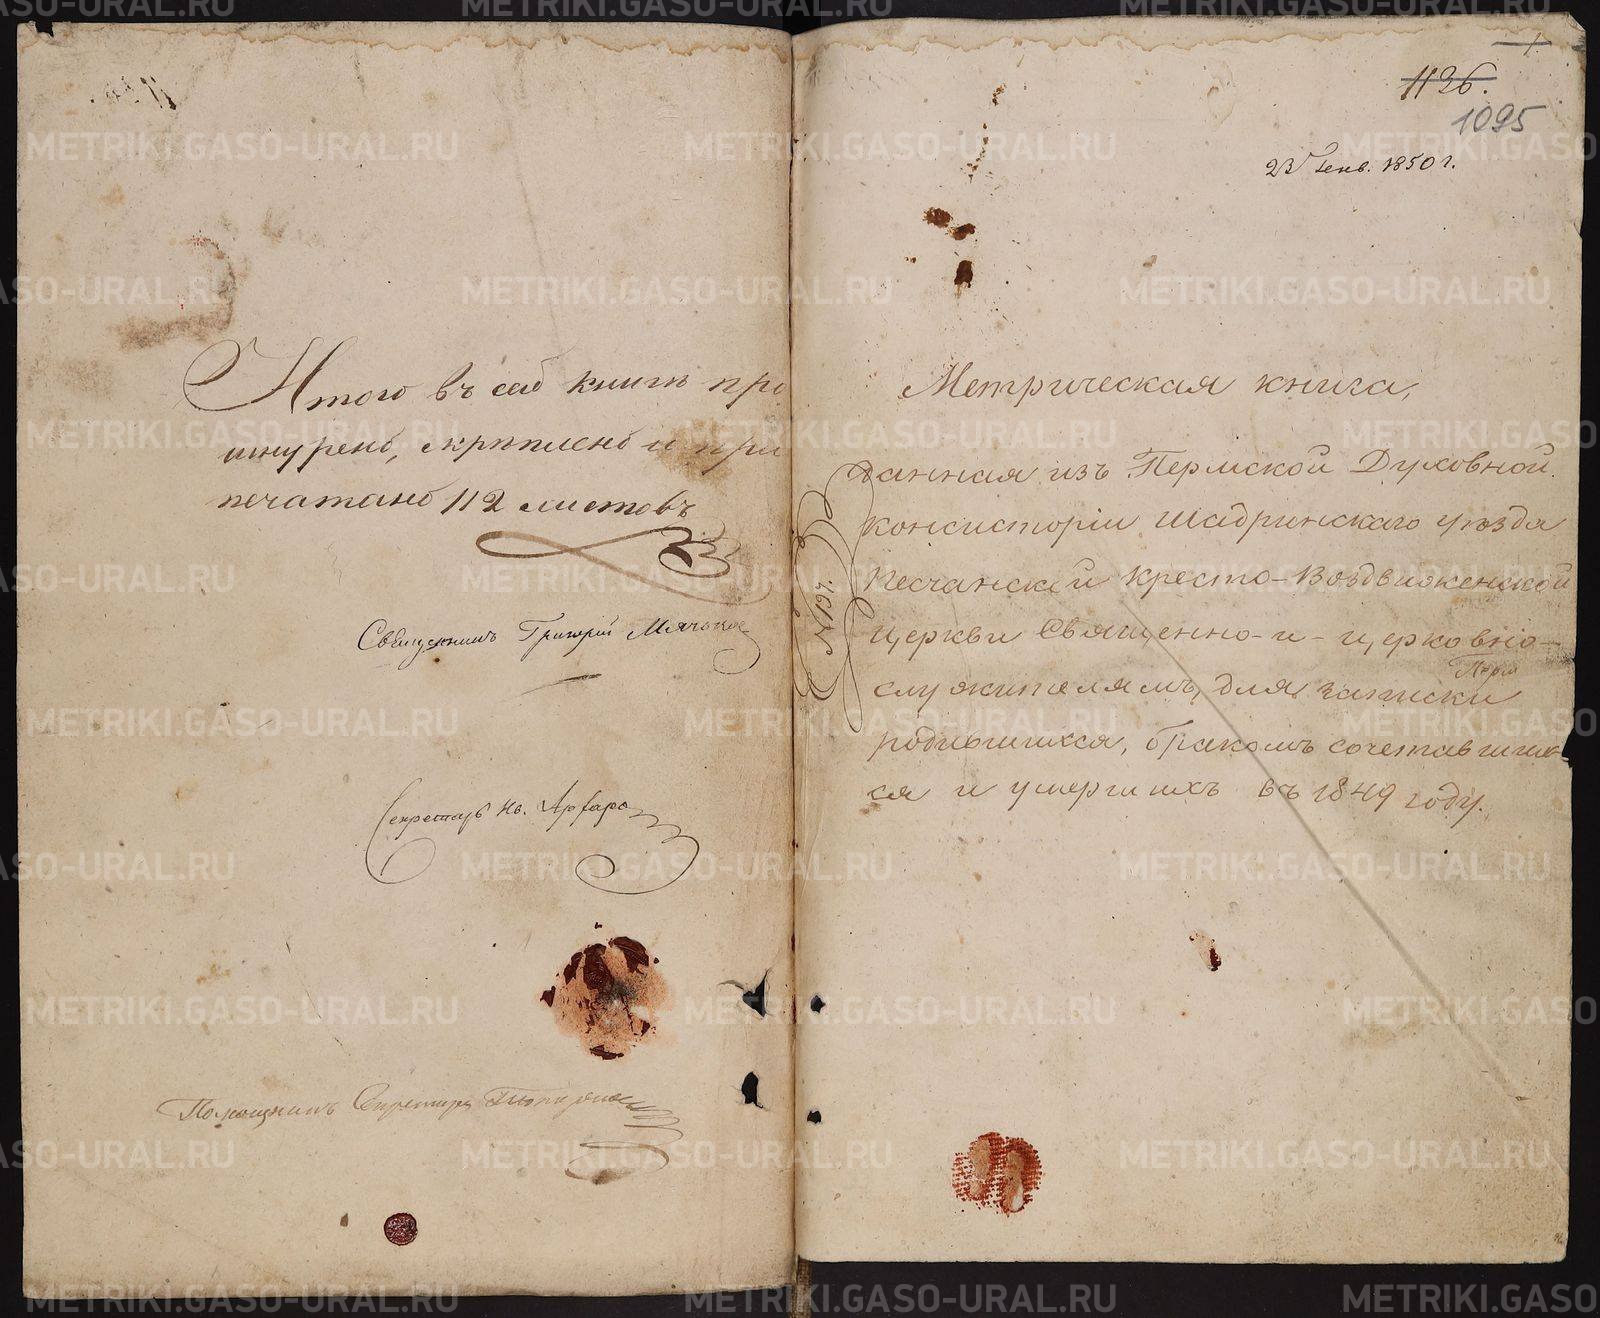 Итого въ сей книгѣ про
шнурено, скрѣплено и при
печатано 112 листовъ
Священникъ Григорій
Секретарь Ив.
Помощникъ Секретаря
1
1136.
1095
23 Генв. 1850 г.
Метрическая книга,
данная изъ Пермской Духовной
консисторіи Шадринскаго уѣзда
Песчанской Кресто-Воздвиженской
церкви Священно-и-церковно-
служителямъ, для записки
родившихся, бракомъ сочетавших-
ся и умершихъ въ 1849 году.
№197.
METRIKI.GASO-URAL.RU